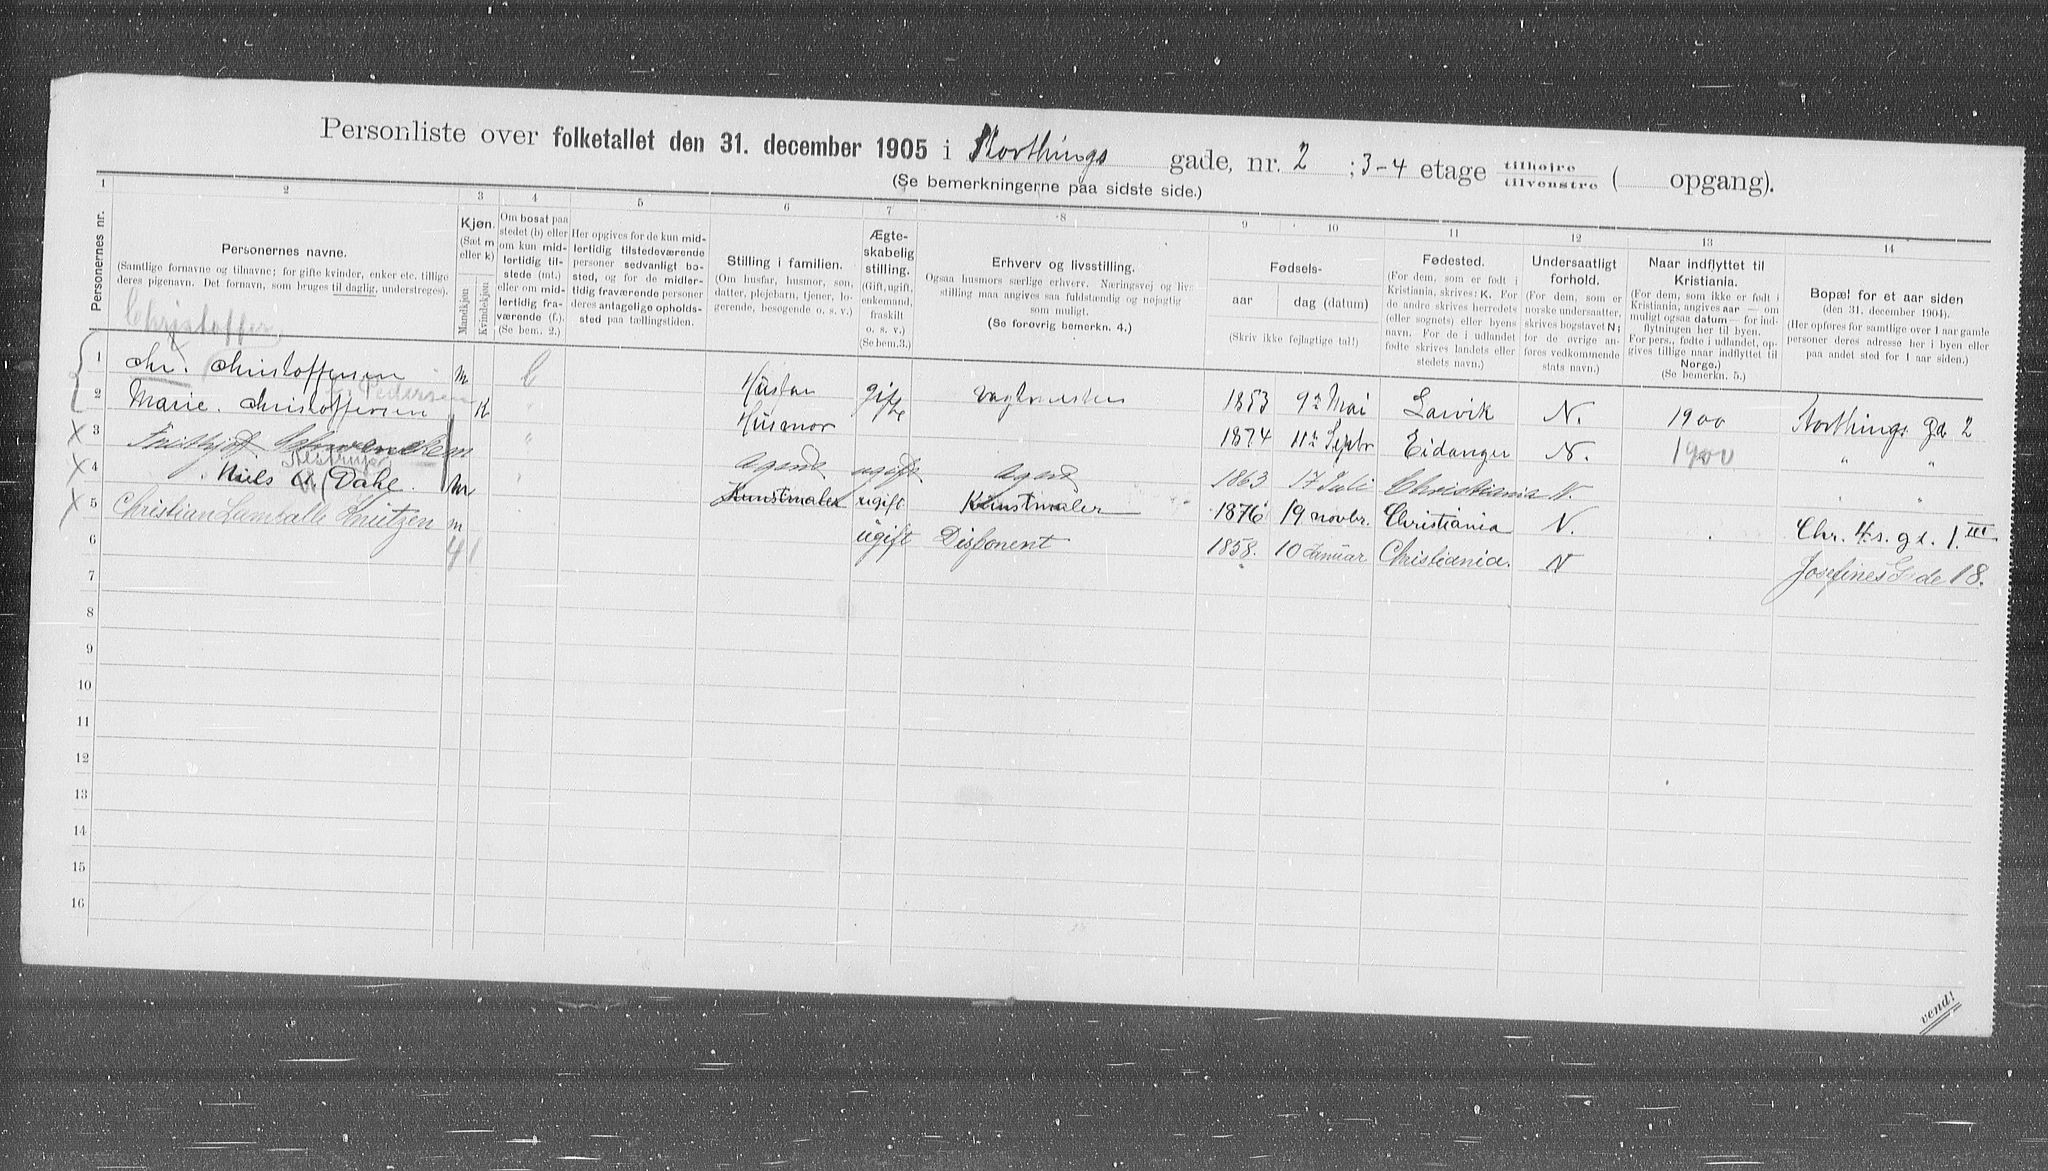 Personliste over folketallet den 31. december 1905 i Storthings gade, nr. 2 ; 3-4 etage tilhøire tilvenstre ( opgang).
(Se bemerkningerne paa sidste side.)
1 2 3 4 5 6 7 8 9 10 11 12 13 14
Personernes nr.
Personernes navne.
(Samtlige fornavne og tilnavne; for gifte kvinder, enker etc. tillige
deres pigenavn. Det fornavn, som bruges til daglig, understreges).
Kjøn.
(Sæt m
eller k)
Mandkjøn
Kvindekjøn
Om bosat paa
stedet (b) eller
om kun mid-
lertidig til-
stede (mt.)
eller om mid-
lertidig fra-
værende (f.).
(Se bem. 2.)
Her opgives for de kun mid-
lertidig tilstedeværende
personer sedvanligt bo-
sted, og for de midler-
tidig fraværende personer
deres antagelige opholds-
sted paa tællingstiden.
Stilling i familien.
(Om husfar, husmor, søn,
datter, plejebarn, tjener, lo-
gerende, besøgende o. s. v.)
Ægte-
skabelig
stilling.
(Gift, ugift,
enkemand,
fraskilt
o. s. v.)
(Se bem.3.)
Erhverv og livsstilling.
Ogsaa husmors særlige erhverv. Næringsvej og livs-
stilling maa angives saa fuldstændig og nøjagtig
som muligt.
(Se forøvrig bemerkn. 4.)
Fødsels-
aar
dag (datum)
(Skriv ikke fejlagtige tal!)
Fødested.
(For dem, som er født i
Kristiania, skrives: K. For
de andre skrives herredets
(eller sognets) eller byens
navn. For de i udlandet
fødte skrives landets eller
stedets navn.)
Undersaatligt
forhold.
(For dem, som er
norske undersaatter,
skrives bogstavet N;
for de øvrige an-
føres vedkommende
stats navn.)
Naar indflyttet til
Kristiania.
(For dem, som ikke er født i
Kristiania, angives aar — om
muligt ogsaa datum — for ind-
flytningen her til byen.
For pers., fødte i udlandet, op-
gives tillige naar indflyttet til
Norge.)
(Se bemerkn. 5.)
Bopæl for et aar siden
(den 31. december 1904).
(Her opføres for samtlige over 1 aar gamle
personer deres adresse her i byen eller
paa andet sted for 1 aar siden.)
Christoffer
1 Chr. Christoffersen m b Husfar gift Vagtmester 1853 9de Mai Larvik N. 1900 Storthings gd 2
f. Pedersen
2 Marie. Christoffersen K " Husmor gift 1874 11te Septbr Eidanger N. 1900 " "
3 Frithjof m " agent ugift agent 1863 17 Juli Christiania N. " "
4 Niels Dahl. m " Kunstmaler ugift Kunstmaler 1876 19 novbr. Christiania N. Chr. 4s. gt. 1. III
5 Christian Lamballe Knutzen m ugift Disponent 1858. 10 Januar Christiania. N Josefines Gade 18.
6 4 1
7
8
9
10
11
12
13
14
15
16
vend!